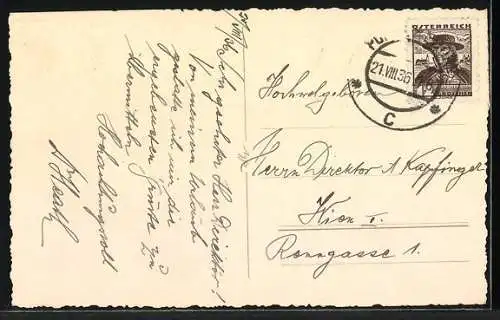 20/VIII/36
Sehr geehrter Herr Direktor!
Von meinem Urlaub
gestatte ich mir die
ergebensten Grüße zu
übermitteln
Hochachtungsvoll
ÖSTERREICH
21.VIII.36
C
Hochwohlgeboren
Herrn Direktor A Kapfinger
Wien I.
Renngasse 1.